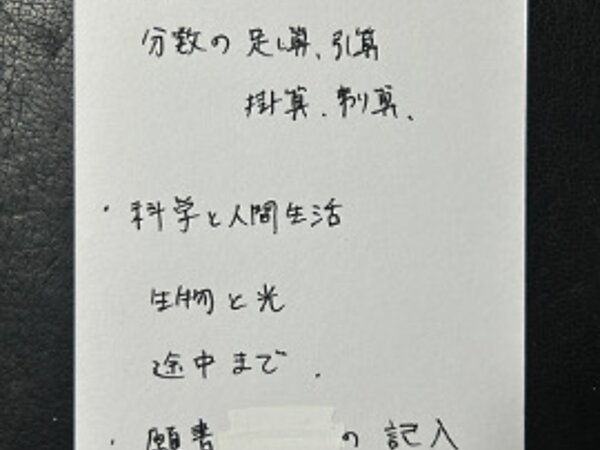 分数の足し算、引算
掛算、割算、
・科学と人間生活
生物と光
途中まで.
・願書 の記入